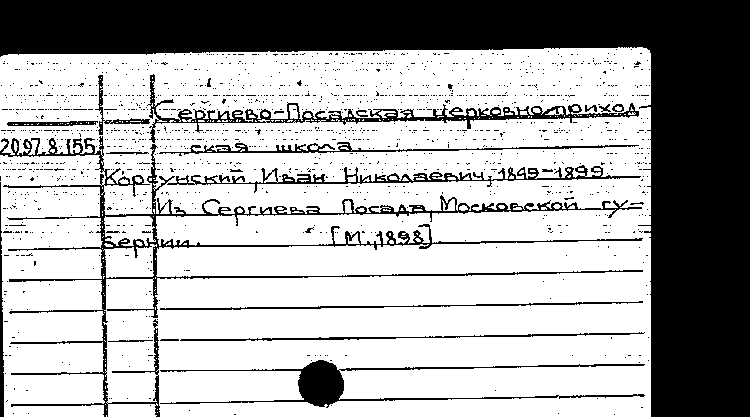 Сергиево-Посадская церковно-приход-
2097.8.155. ская школа.
Корсунский, Иван Николаевич, 1849-1899.
Из Сергиева Посада, Московской гу=
бернии. [М., 1898].